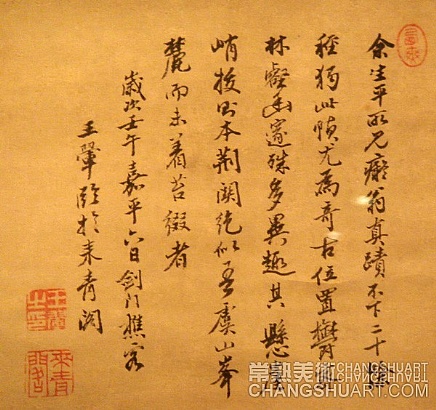 余生平所见痴翁真蹟不下二十馀
種獨此幀尤為奇古位置欝
林壑邃殊多異趣其懸
峭拔則本荊關絶似吾虞山峯
麓而未著苔綴者
歲次壬午嘉平六日劍門樵客
王翬臨於来青閣
来青
常熟美術 CHANGSHUART
CHANGSHUART.COM